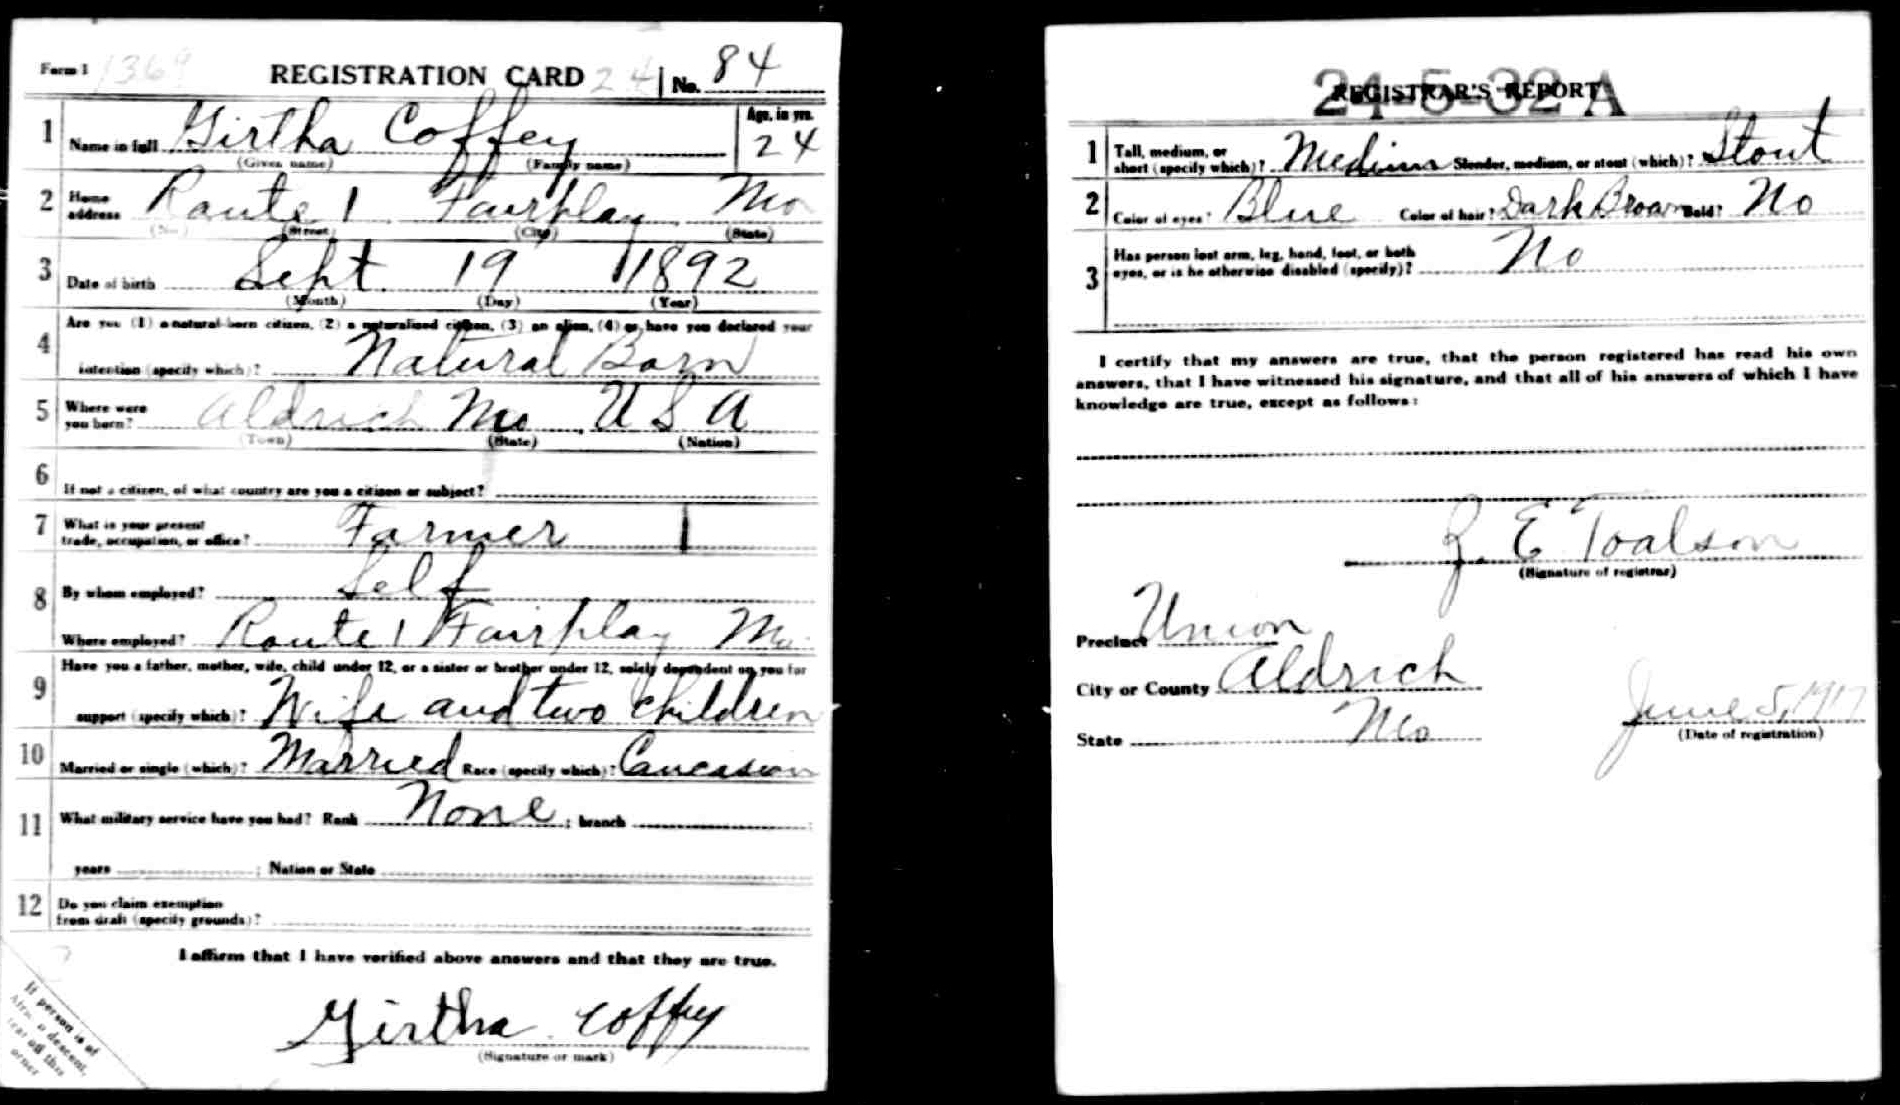 Form 1 1369 REGISTRATION CARD 24 No. 84
1 Name in full Girtha Coffey Age, in yrs. 24
(Given name) (Family name)
2 Home address Route 1 Fairplay Mo
(No.) (Street) (City) (State)
3 Date of birth Sept 19 1892
(Month) (Day) (Year)
4 Are you (1) a natural-born citizen, (2) a naturalized citizen, (3) an alien, (4) or have you declared your
intention (specify which)? Natural Born
5 Where were you born? Aldrich Mo U S A
(Town) (State) (Nation)
6 If not a citizen, of what country are you a citizen or subject?
7 What is your present trade, occupation, or office? Farmer
8 By whom employed? Self
Where employed? Route 1 Fairplay Mo.
9 Have you a father, mother, wife, child under 12, or a sister or brother under 12, solely dependent on you for
support (specify which)? Wife and two children
10 Married or single (which)? Married Race (specify which)? Caucasian
11 What military service have you had? Rank None ; branch
years ; Nation or State
12 Do you claim exemption
from draft (specify grounds)?
I affirm that I have verified above answers and that they are true.
Girtha Coffey
(Signature or mark)
If person is of
African descent,
tear off this
corner
24-5-32 A
REGISTRAR'S REPORT
1 Tall, medium, or short (specify which)? Medium Slender, medium, or stout (which)? Stout
2 Color of eyes? Blue Color of hair? Dark Brown Bald? No
3 Has person lost arm, leg, hand, foot, or both
eyes, or is he otherwise disabled (specify)? No
I certify that my answers are true, that the person registered has read his own
answers, that I have witnessed his signature, and that all of his answers of which I have
knowledge are true, except as follows:
E Toalson
(Signature of registrar)
Precinct Union
City or County Aldrich
State Mo
June 5, 1917
(Date of registration)